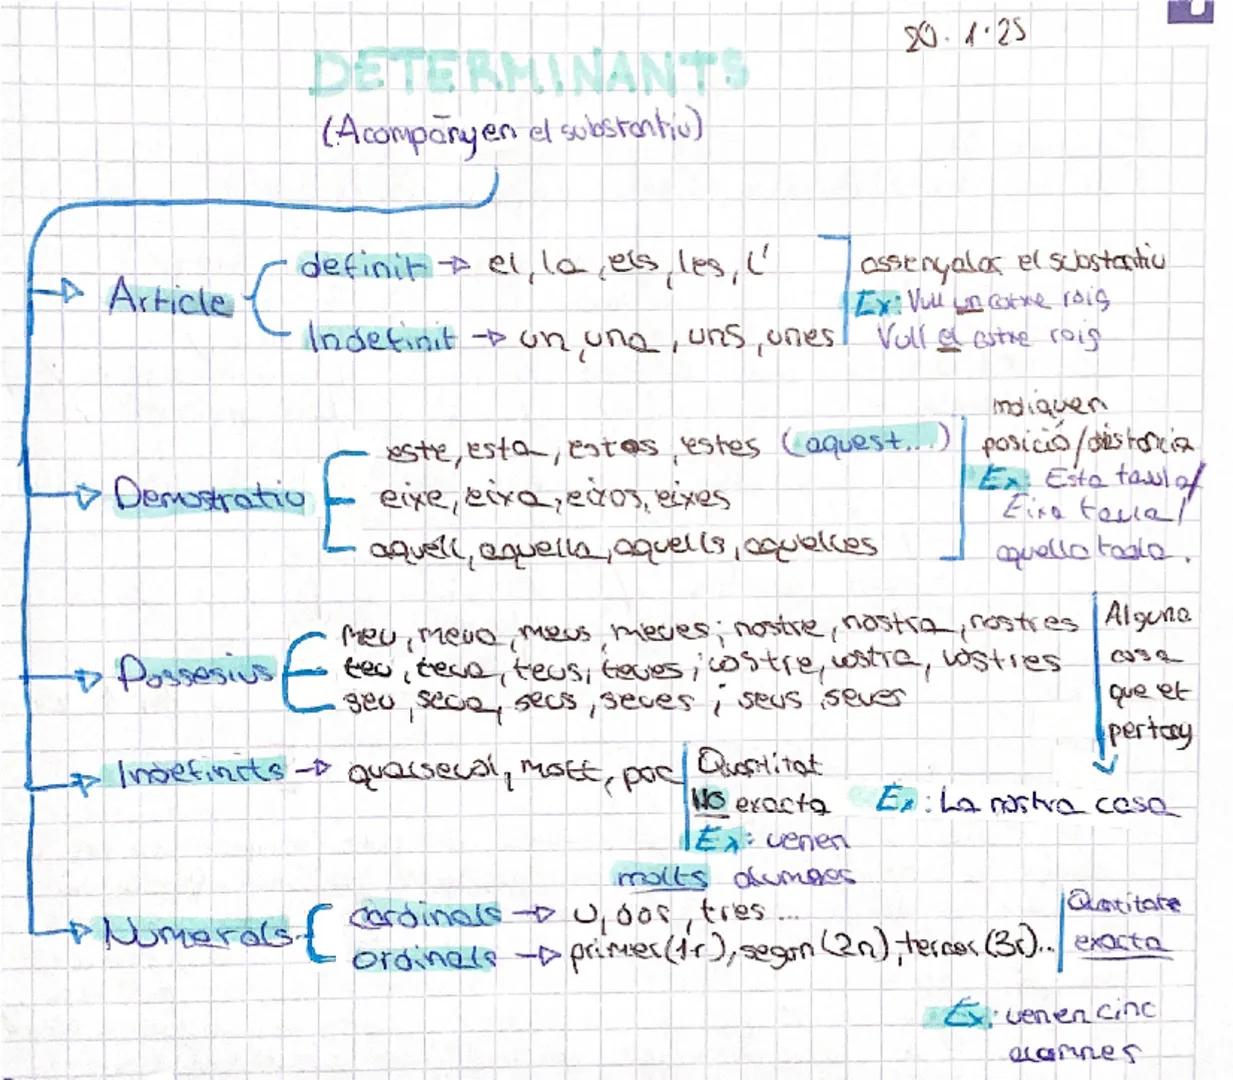 20.1.25
DETERMINANTS
(Acompanyen el substantiu)
Article
definit → el, la, els, les, l'
Indefinit → un, una, uns, unes
assenyalar el substantiu
Ex: Vull un cotxe roig
Vull el cotxe roig
Demostratiu
este, esta, estos, estes (aquest...)
eixe, eixa, eixos, eixes
aquell, aquella, aquells, aquelles
indiquen
posició/distancia
Ex: Esta taula/
Eixa taula/
aquella taula.
Possesius
meu, meua, meus, meues; nostre, nostra, nostres
teu, teua, teus, teues; vostre, vostra, vostres
seu, seua, seus, seues; seus, seues
Alguna
cosa
que et
pertany
Ex: La nostra casa
Indefinits → qualsevol, molt, poc
Quantitat
No exacta
Ex: venen
molts alumnes
Numerals
cardinals → u, dos, tres...
ordinals → primer (1r), segon (2n), tercer (3r)..
Quantitat
exacta
Ex: venen cinc
alumnes